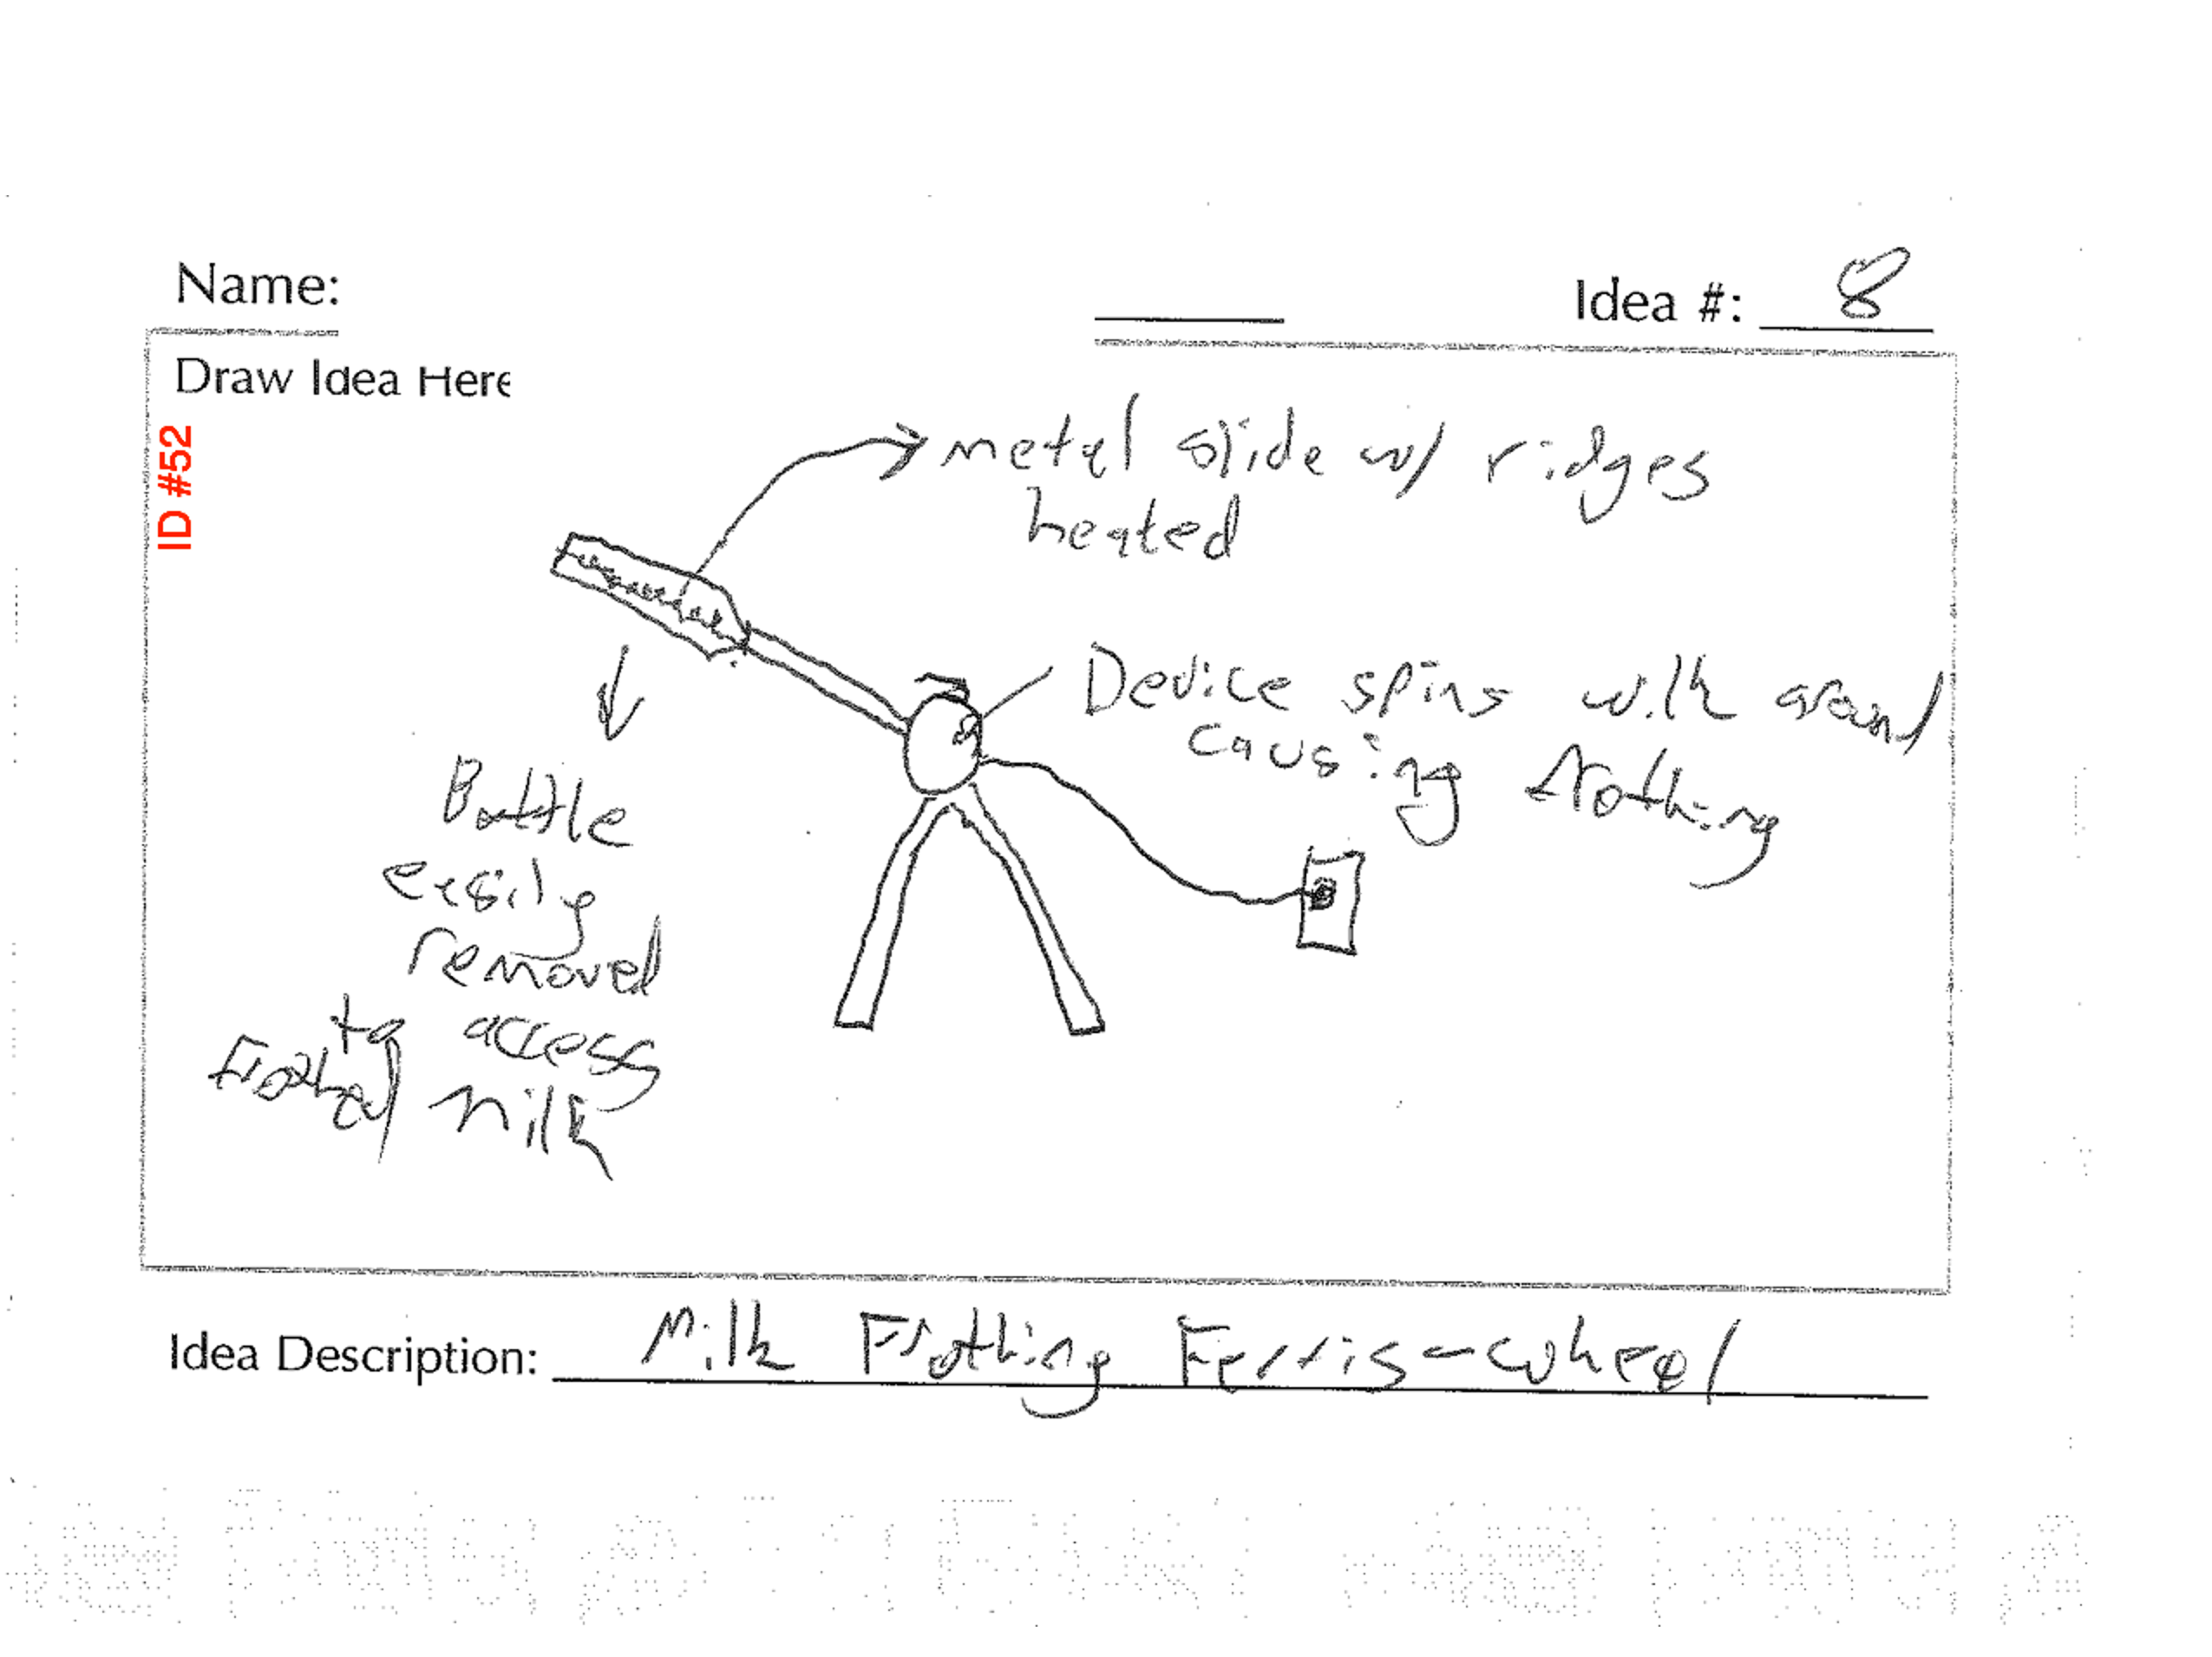 Name:
Idea #: 8
Draw Idea Here
ID #52
metal slide w/ ridges
heated
Device spins milk around
causing frothing
Bottle
easily
removed
to access
Frothed milk
Idea Description: Milk Frothing Ferris-wheel